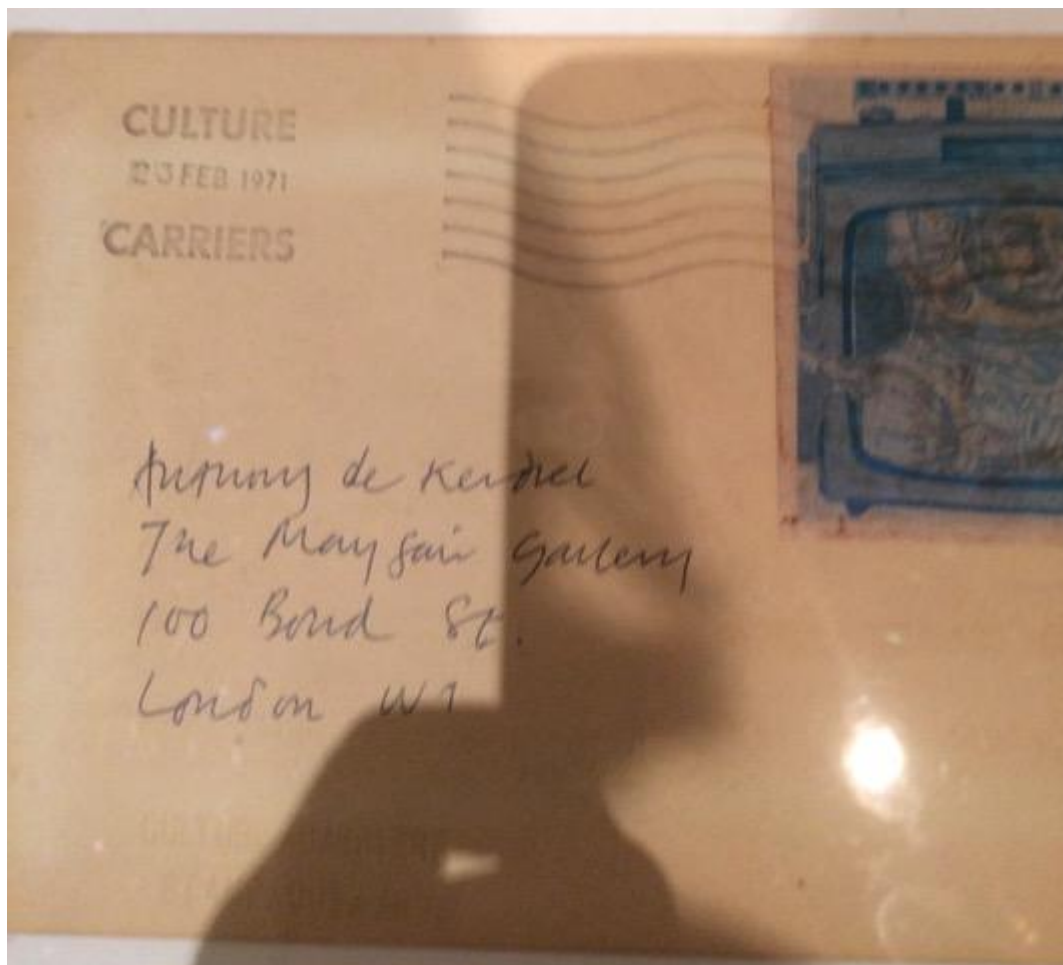 CULTURE
23 FEB 1971
CARRIERS
Anthony de Kerdrel
The Mayfair Gallery
100 Bond St.
London W1